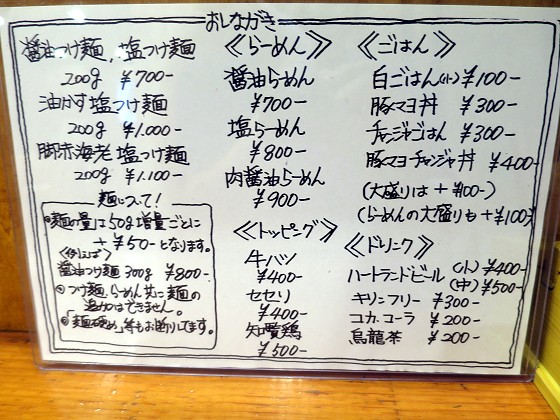 おしながき
醤油つけ麺、塩つけ麺
200g ¥700-
油かす塩つけ麺
200g ¥1.000-
脚赤海老塩つけ麺
200g ¥1.100-
麺について!
麺の量は50g増量ごとに
+¥50-となります。
〈例えば〉
醤油つけ麺300g ¥800-
つけ麺、らーめん共に麺の
追加はできません。
「麺硬め」等もお断りしてます。
《らーめん》
醤油らーめん
¥700-
塩らーめん
¥800-
肉醤油らーめん
¥900-
《トッピング》
牛ハツ
¥400-
セセリ
¥400-
知覧鶏
¥500-
《ごはん》
白ごはん(小) ¥100-
豚マヨ丼 ¥300-
チャンジャごはん ¥300-
豚マヨチャンジャ丼 ¥400-
(大盛りは+¥100-)
(らーめんの大盛りも+¥100)
《ドリンク》
ハートランドビール (小)¥400-
(中)¥500-
キリンフリー ¥300-
コカ・コーラ ¥200-
烏龍茶 ¥200-